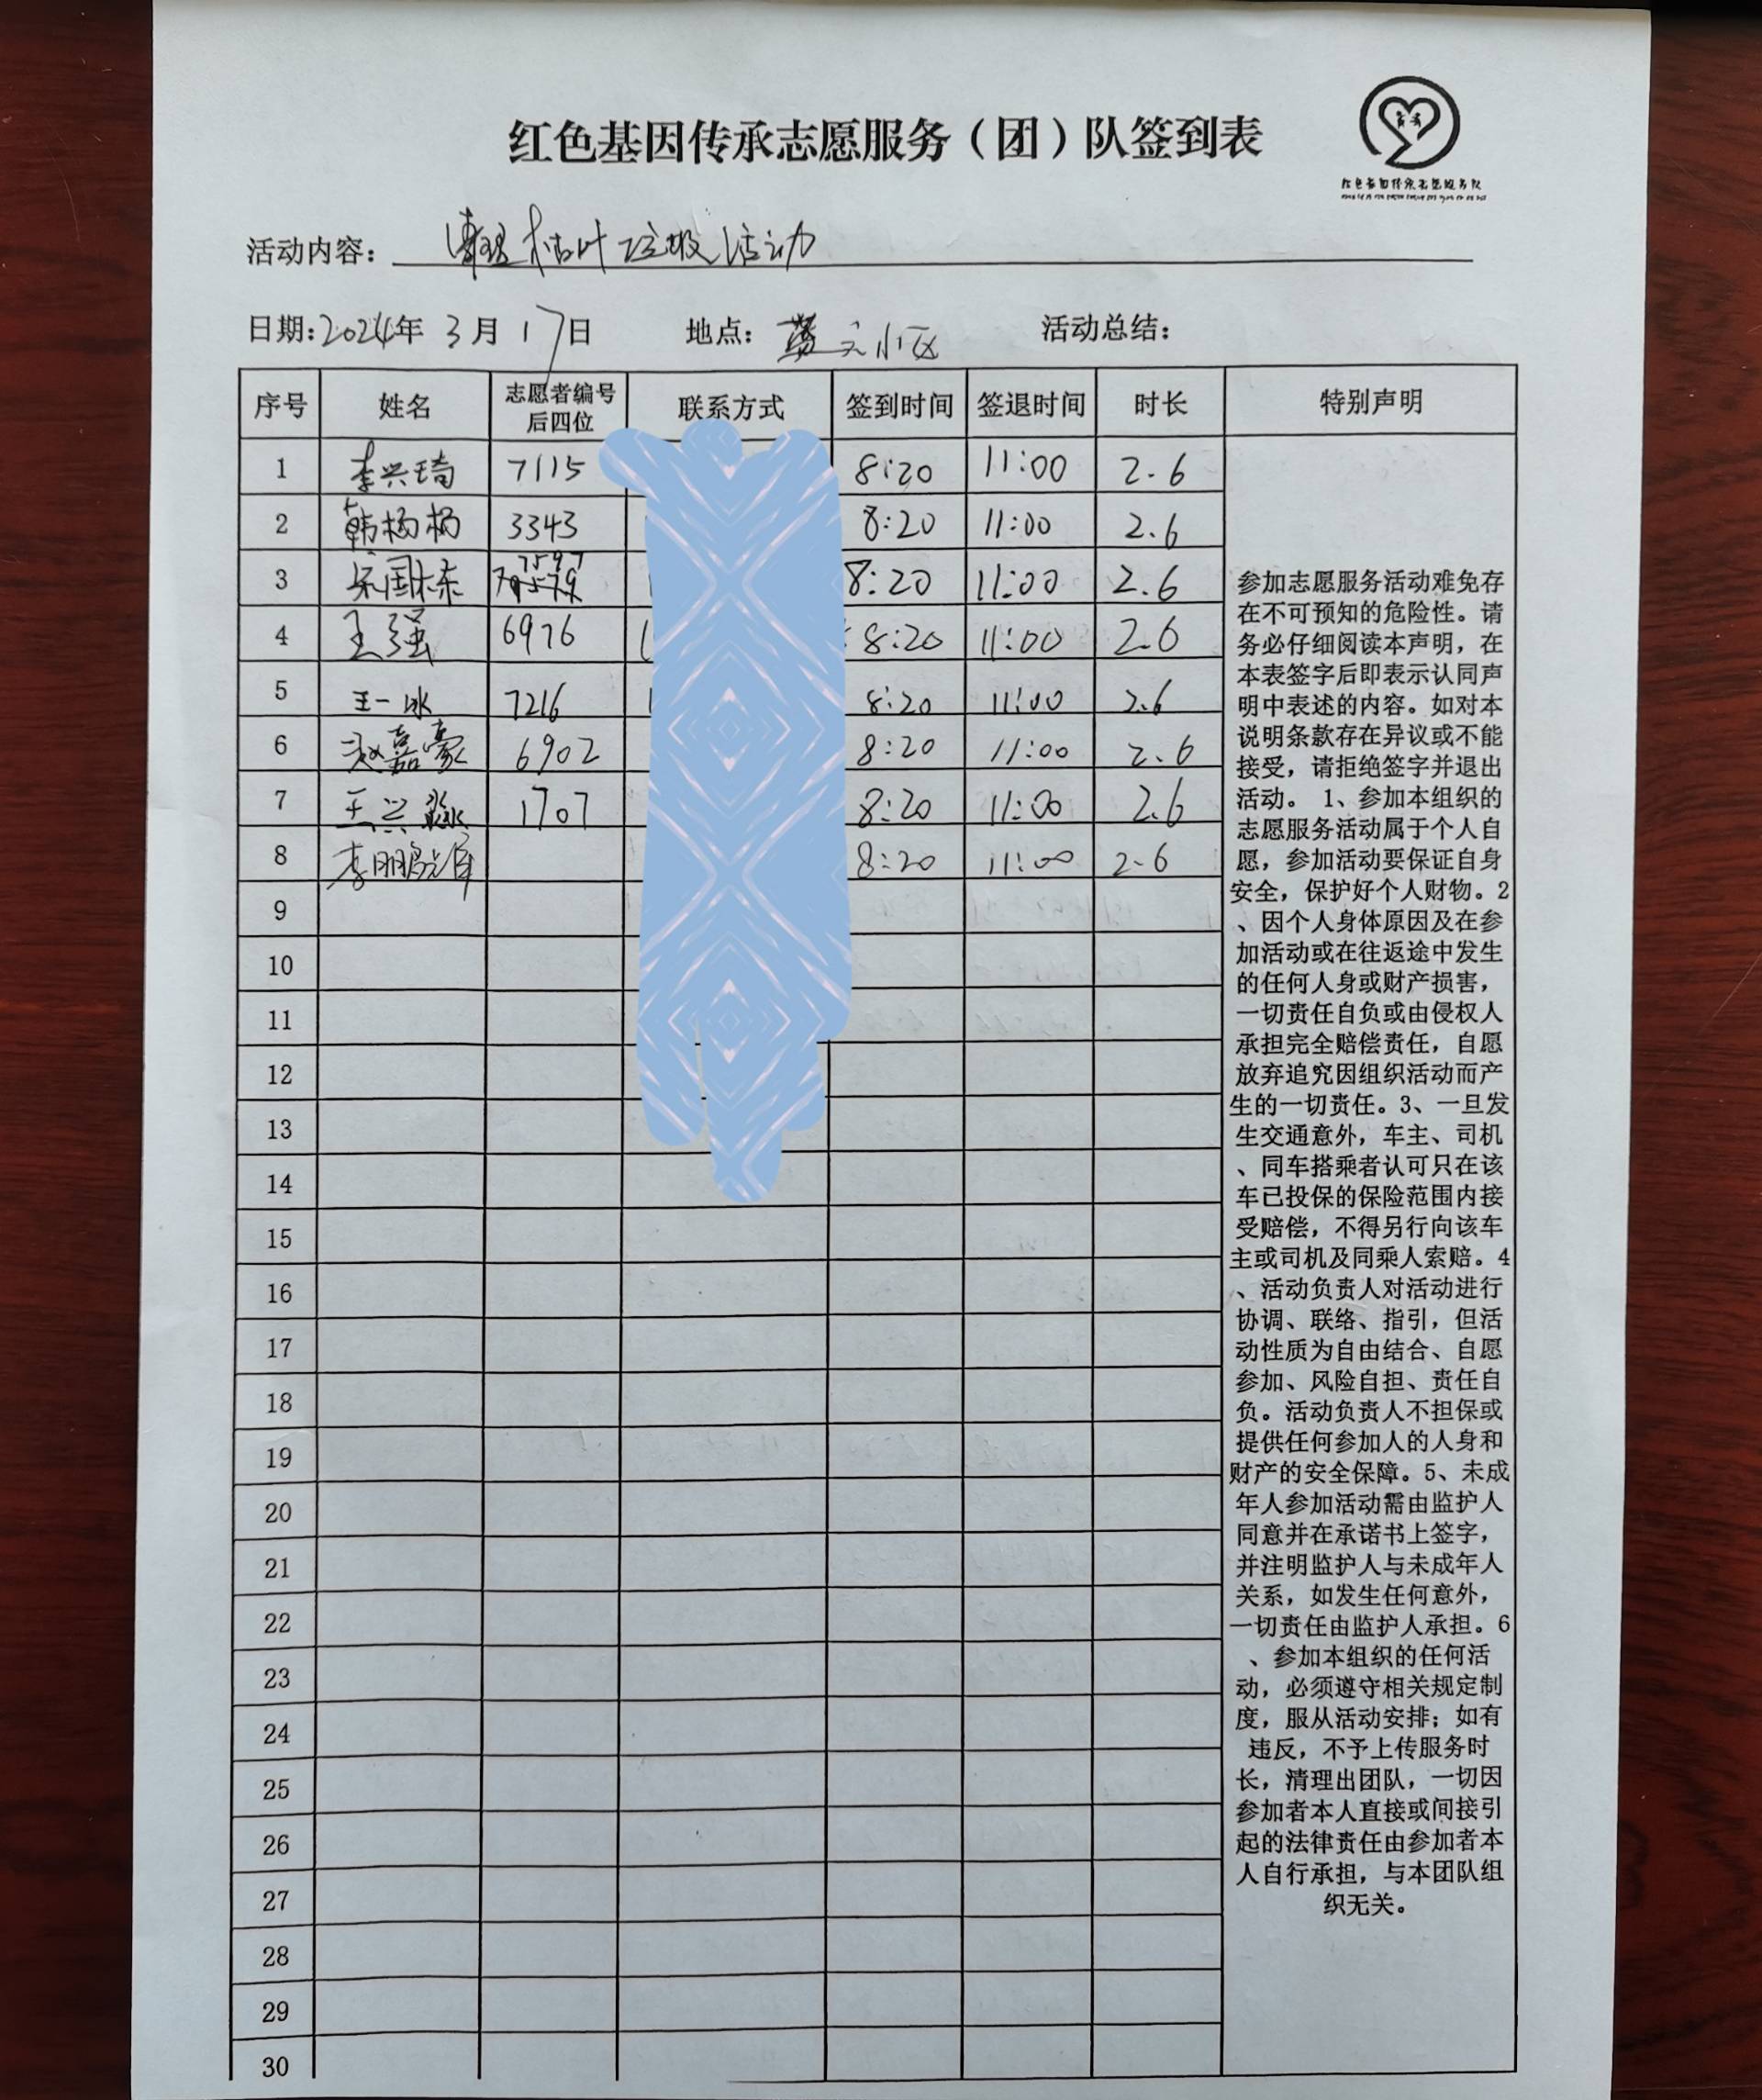 红色基因传承志愿服务（团）队签到表
红色基因传承志愿服务队
活动内容： 清理枯叶垃圾活动
日期:2024年 3月 17日 地点： 小区 活动总结：
序号 姓名 志愿者编号后四位 联系方式 签到时间 签退时间 时长 特别声明
1 李兴琦 7115 8:20 11:00 2.6
2 韩杨杨 3343 8:20 11:00 2.6
3 宋国栋 7597 8:20 11:00 2.6
4 王强 6976 8:20 11:00 2.6
5 王一冰 7216 8:20 11:00 2.6
6 赵嘉豪 6902 8:20 11:00 2.6
7 王兴淼 1707 8:20 11:00 2.6
8 李鹏 8:20 11:00 2.6
9
10
11
12
13
14
15
16
17
18
19
20
21
22
23
24
25
26
27
28
29
30
参加志愿服务活动难免存
在不可预知的危险性。请
务必仔细阅读本声明，在
本表签字后即表示认同声
明中表述的内容。如对本
说明条款存在异议或不能
接受，请拒绝签字并退出
活动。 1、参加本组织的
志愿服务活动属于个人自
愿，参加活动要保证自身
安全，保护好个人财物。2
、因个人身体原因及在参
加活动或在往返途中发生
的任何人身或财产损害，
一切责任自负或由侵权人
承担完全赔偿责任，自愿
放弃追究因组织活动而产
生的一切责任。3、一旦发
生交通意外，车主、司机
、同车搭乘者认可只在该
车已投保的保险范围内接
受赔偿，不得另行向该车
主或司机及同乘人索赔。4
、活动负责人对活动进行
协调、联络、指引，但活
动性质为自由结合、自愿
参加、风险自担、责任自
负。活动负责人不担保或
提供任何参加人的人身和
财产的安全保障。5、未成
年人参加活动需由监护人
同意并在承诺书上签字，
并注明监护人与未成年人
关系，如发生任何意外，
一切责任由监护人承担。6
、参加本组织的任何活
动，必须遵守相关规定制
度，服从活动安排；如有
违反，不予上传服务时
长，清理出团队，一切因
参加者本人直接或间接引
起的法律责任由参加者本
人自行承担，与本团队组
织无关。